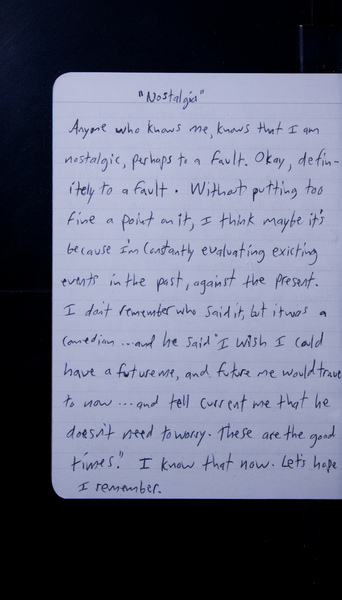 "Nostalgia"
Anyone who knows me, knows that I am
nostalgic, perhaps to a fault. Okay, defin-
itely to a fault. Without putting too
fine a point on it, I think maybe it's
because I'm constantly evaluating existing
events in the past, against the present.
I don't remember who said it, but it was a
comedian ... and he said "I wish I could
have a future me, and future me would trave
to now ... and tell current me that he
doesn't need to worry. These are the good
times." I know that now. Let's hope
I remember.